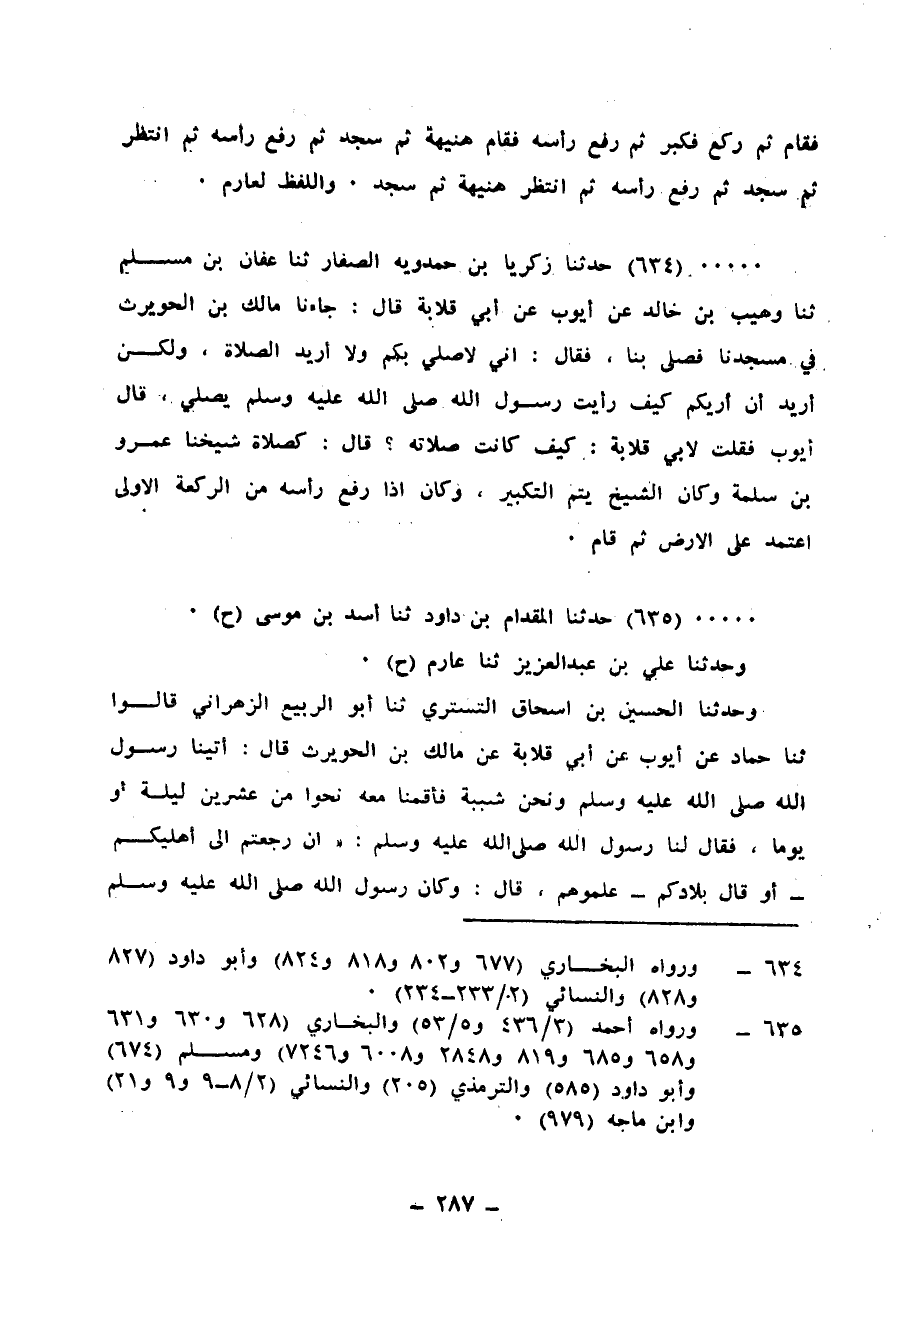 فقام ثم ركع فكبر ثم رفع رأسه فقام هنيهة ثم سجد ثم رفع رأسه ثم انتظر
ثم سجد ثم رفع رأسه ثم انتظر هنيهة ثم سجد ٠ واللفظ لعارم ٠
٠٠٠٠٠ (٦٣٤) حدثنا زكريا بن حمدويه الصفار ثنا عفان بن مسلم
ثنا وهيب بن خالد عن أيوب عن أبي قلابة قال : جاءنا مالك بن الحويرث
في مسجدنا فصلى بنا ، فقال : اني لاصلي بكم ولا أريد الصلاة ، ولكن
أريد أن أريكم كيف رأيت رسول الله صلى الله عليه وسلم يصلي ، قال
أيوب فقلت لابي قلابة : كيف كانت صلاته ؟ قال : كصلاة شيخنا عمرو
بن سلمة وكان الشيخ يتم التكبير ، وكان اذا رفع رأسه من الركعة الاولى
اعتمد على الارض ثم قام ٠
٠٠٠٠٠ (٦٣٥) حدثنا المقدام بن داود ثنا أسد بن موسى (ح) ٠
وحدثنا علي بن عبدالعزيز ثنا عارم (ح) ٠
وحدثنا الحسين بن اسحاق التستري ثنا أبو الربيع الزهراني قالوا
ثنا حماد عن أيوب عن أبي قلابة عن مالك بن الحويرث قال : أتينا رسول
الله صلى الله عليه وسلم ونحن شببة فأقمنا معه نحوا من عشرين ليلة أو
يوما ، فقال لنا رسول الله صلى الله عليه وسلم : « ان رجعتم الى أهليكم
ــ أو قال بلادكم ــ علموهم ، قال : وكان رسول الله صلى الله عليه وسلم
٦٣٤ ــ ورواه البخاري (٦٧٧ و٨٠٢ و٨١٨ و٨٢٤) وأبو داود (٨٢٧
و٨٢٨) والنسائي (٢/٢٣٣ــ٢٣٤) ٠
٦٣٥ ــ ورواه أحمد (٤٣٦/٣ و٥٣/٥) والبخاري (٦٢٨ و٦٣٠ و٦٣١
و٦٥٨ و٦٨٥ و٨١٩ و٢٨٤٨ و٦٠٠٨ و٧٢٤٦) ومسلم (٦٧٤)
وأبو داود (٥٨٥) والترمذي (٢٠٥) والنسائي (٨/٢ــ٩ و٩ و٢١)
وابن ماجه (٩٧٩) ٠
ــ ٢٨٧ ــ